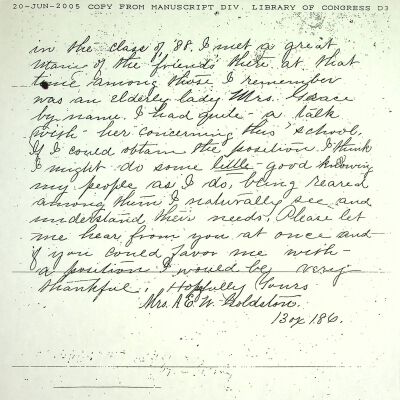 20-JUN-2005 COPY FROM MANUSCRIPT DIV. LIBRARY OF CONGRESS D3
in the class of '88. I met a great
many of the friends there at that
time among those I remember
was an elderly lady Mrs. Grace
by name. I had quite - a talk
with - her concerning this school.
If I could obtain the position I think
I might do some little - good knowing
my people as I do, being reared
among them I naturally see and
understand their needs. Please let
me hear from you at once and
if you could favor me with -
a position I would be very
thankful. Hopfully Yours
Mrs. A. E. W. Goldston.
Box 186.